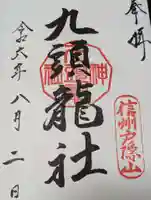 奉拝
九頭龍社
信州戸隠山
令和六年八月二日